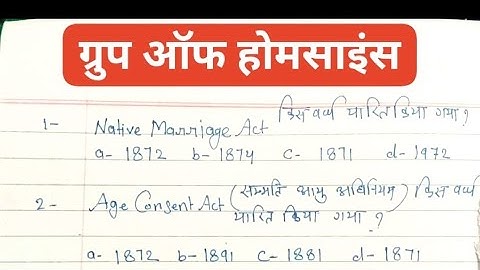 ग्रुप ऑफ होमसाइंस
1- Native Marriage Act किस वर्ष पारित किया गया?
a- 1872 b- 1874 c- 1871 d- 1972
2- Age Consent Act (सम्मति आयु अधिनियम) किस वर्ष
पारित किया गया?
a- 1872 b- 1891 c- 1881 d- 1871